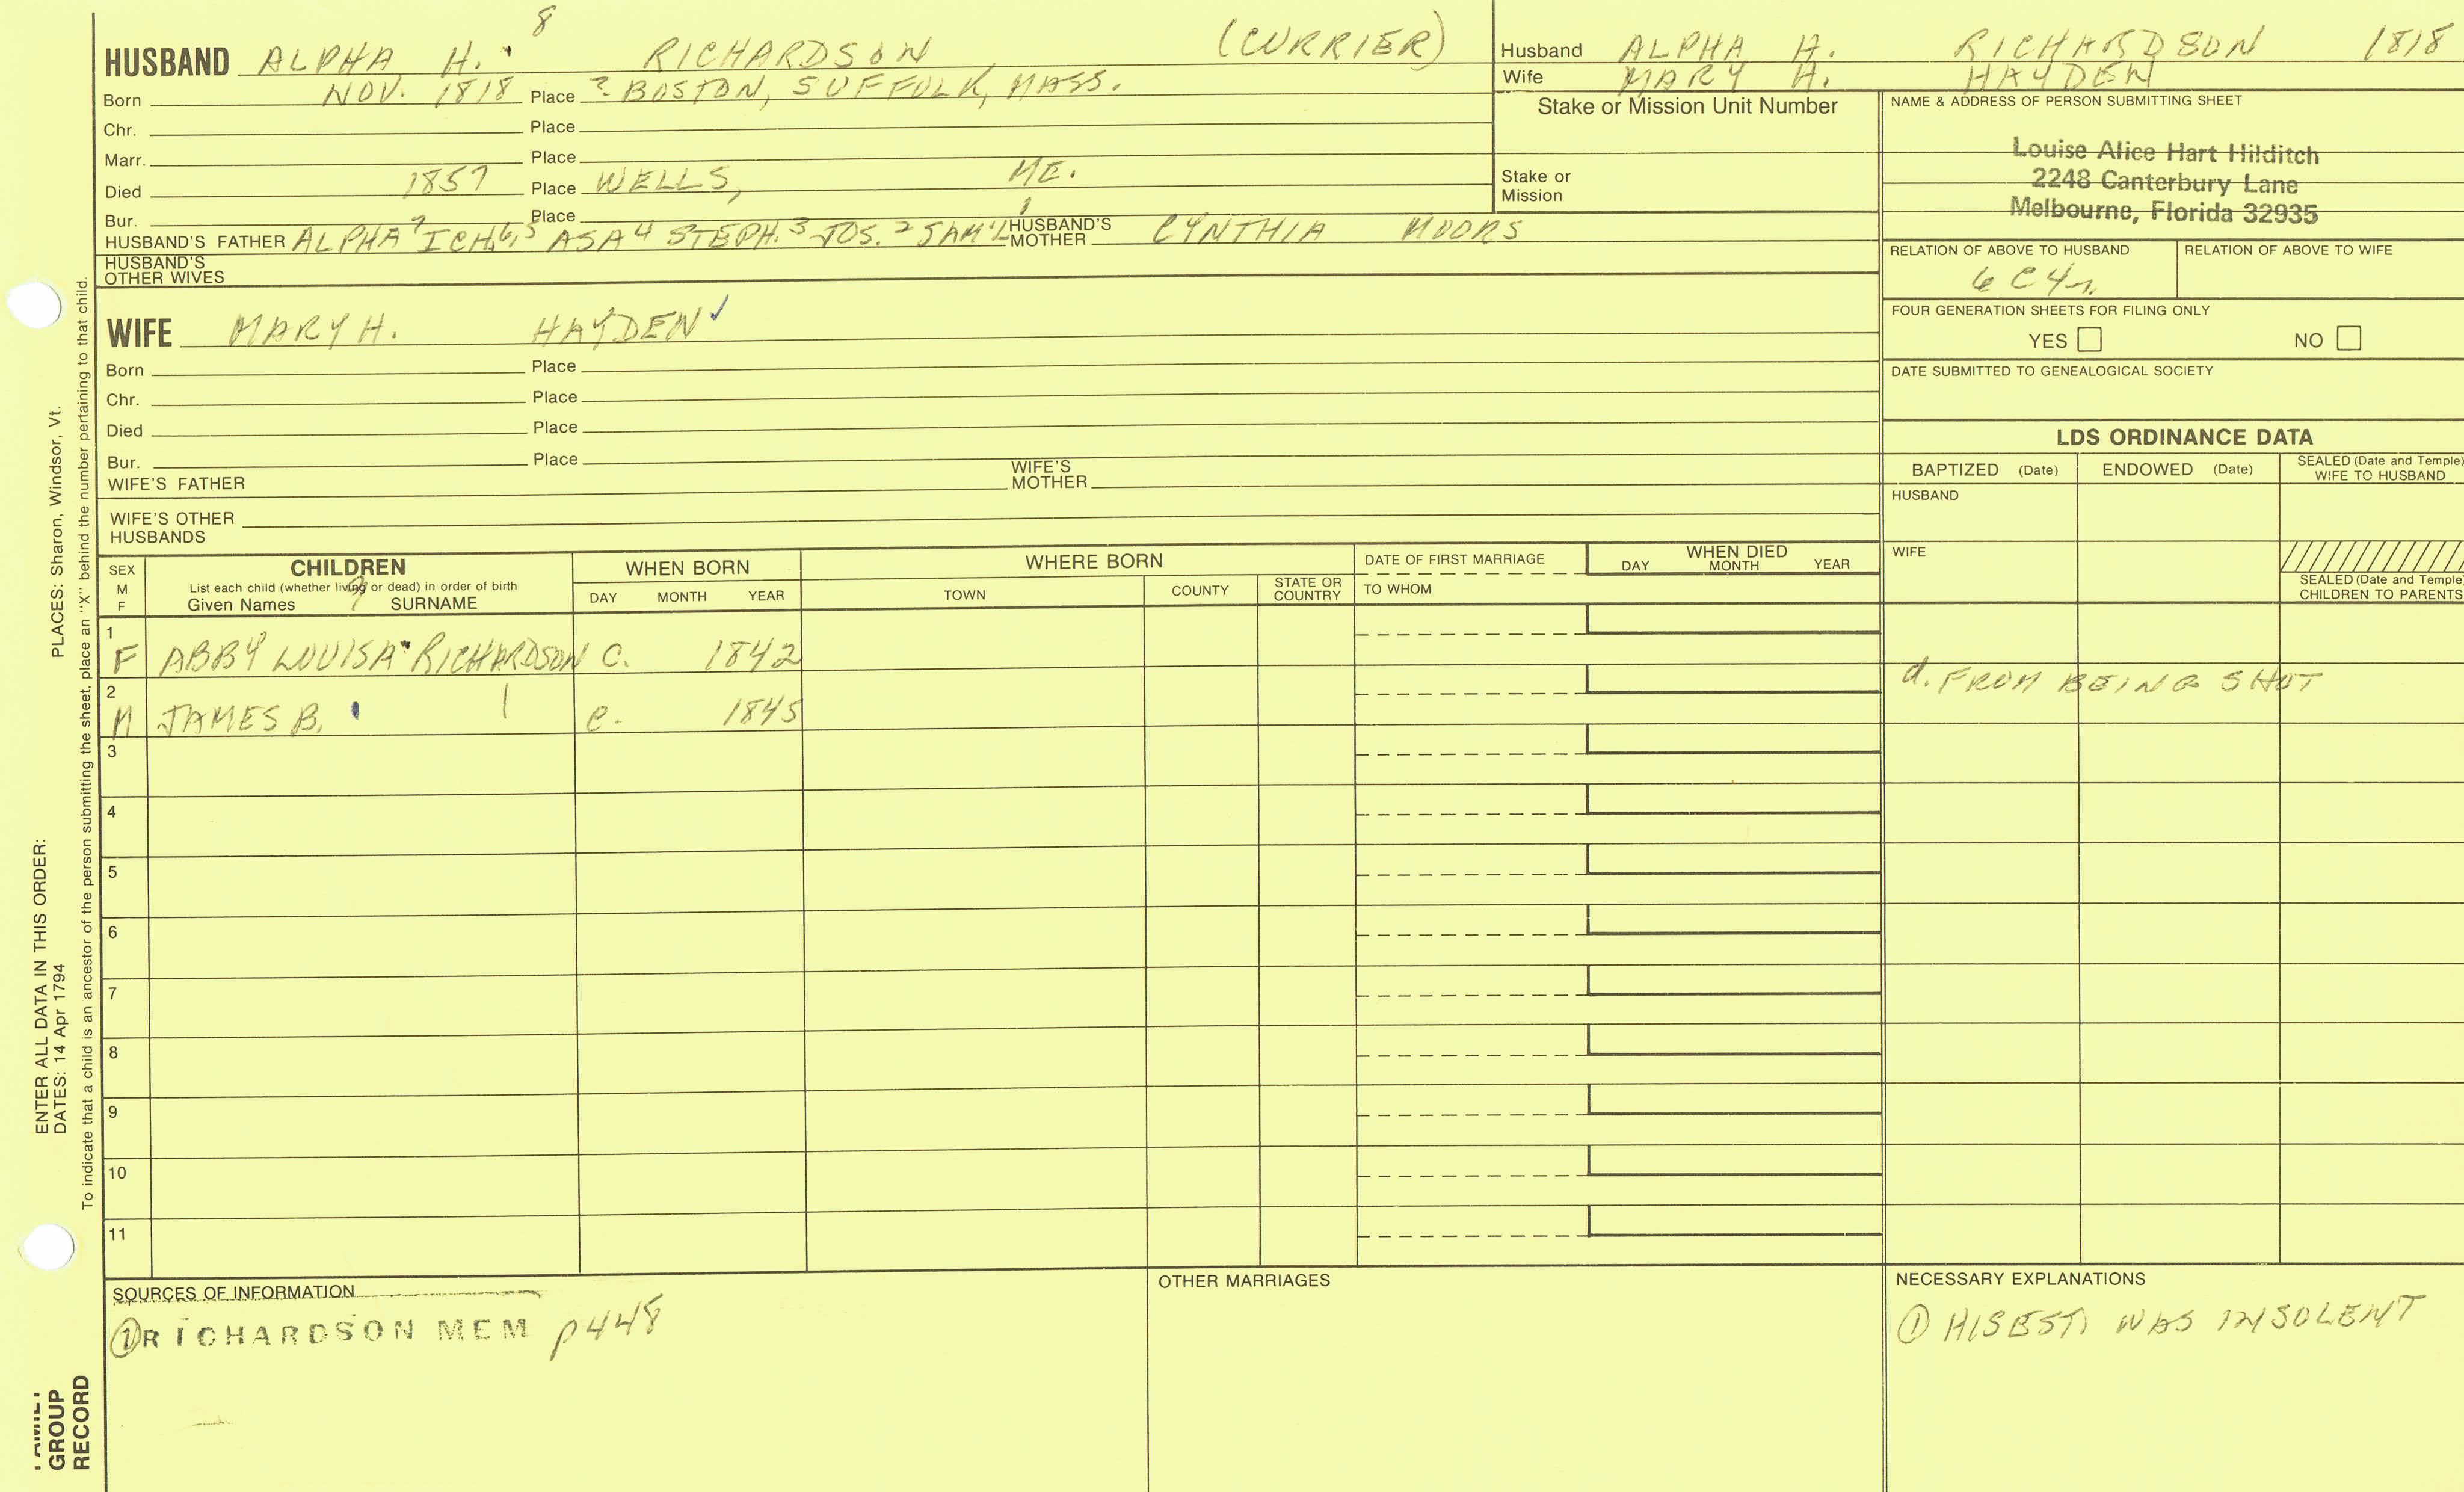 8
HUSBAND ALPHA H. RICHARDSON (CURRIER)
Born NOV. 1818 Place ? BOSTON, SUFFOLK, MASS.
Chr. Place
Marr. Place
Died 1857 Place WELLS, ME.
Bur. Place
HUSBAND'S FATHER ALPHA 7 ICH. 6, 5 ASA 4 STEPH. 3 JOS. 2 SAM'L 1 HUSBAND'S MOTHER CYNTHIA MOORS
HUSBAND'S OTHER WIVES
WIFE MARY H. HAYDEN ✓
Born Place
Chr. Place
Died Place
Bur. Place
WIFE'S FATHER WIFE'S MOTHER
WIFE'S OTHER HUSBANDS
Husband ALPHA H. RICHARDSON 1818
Wife MARY H. HAYDEN
Stake or Mission Unit Number
Stake or Mission
NAME & ADDRESS OF PERSON SUBMITTING SHEET
Louise Alice Hart Hilditch
2248 Canterbury Lane
Melbourne, Florida 32935
RELATION OF ABOVE TO HUSBAND RELATION OF ABOVE TO WIFE
6 C 4 r.
FOUR GENERATION SHEETS FOR FILING ONLY
YES NO
DATE SUBMITTED TO GENEALOGICAL SOCIETY
LDS ORDINANCE DATA
BAPTIZED (Date) ENDOWED (Date) SEALED (Date and Temple) WIFE TO HUSBAND
HUSBAND
WIFE
SEALED (Date and Temple) CHILDREN TO PARENTS
SEX M F
CHILDREN
List each child (whether living or dead) in order of birth
Given Names 9 SURNAME
WHEN BORN
DAY MONTH YEAR
WHERE BORN
TOWN COUNTY STATE OR COUNTRY
DATE OF FIRST MARRIAGE
TO WHOM
WHEN DIED
DAY MONTH YEAR
1 F ABBY LOUISA RICHARDSON C. 1842
2 M JAMES B. | C. 1845 d. FROM BEING SHOT
3
4
5
6
7
8
9
10
11
SOURCES OF INFORMATION
① RICHARDSON MEM p448
OTHER MARRIAGES
NECESSARY EXPLANATIONS
① HIS EST. WAS INSOLENT
PLACES: Sharon, Windsor, Vt.
ENTER ALL DATA IN THIS ORDER:
DATES: 14 Apr 1794
To indicate that a child is an ancestor of the person submitting the sheet, place an "X" behind the number pertaining to that child.
FAMILY
GROUP
RECORD